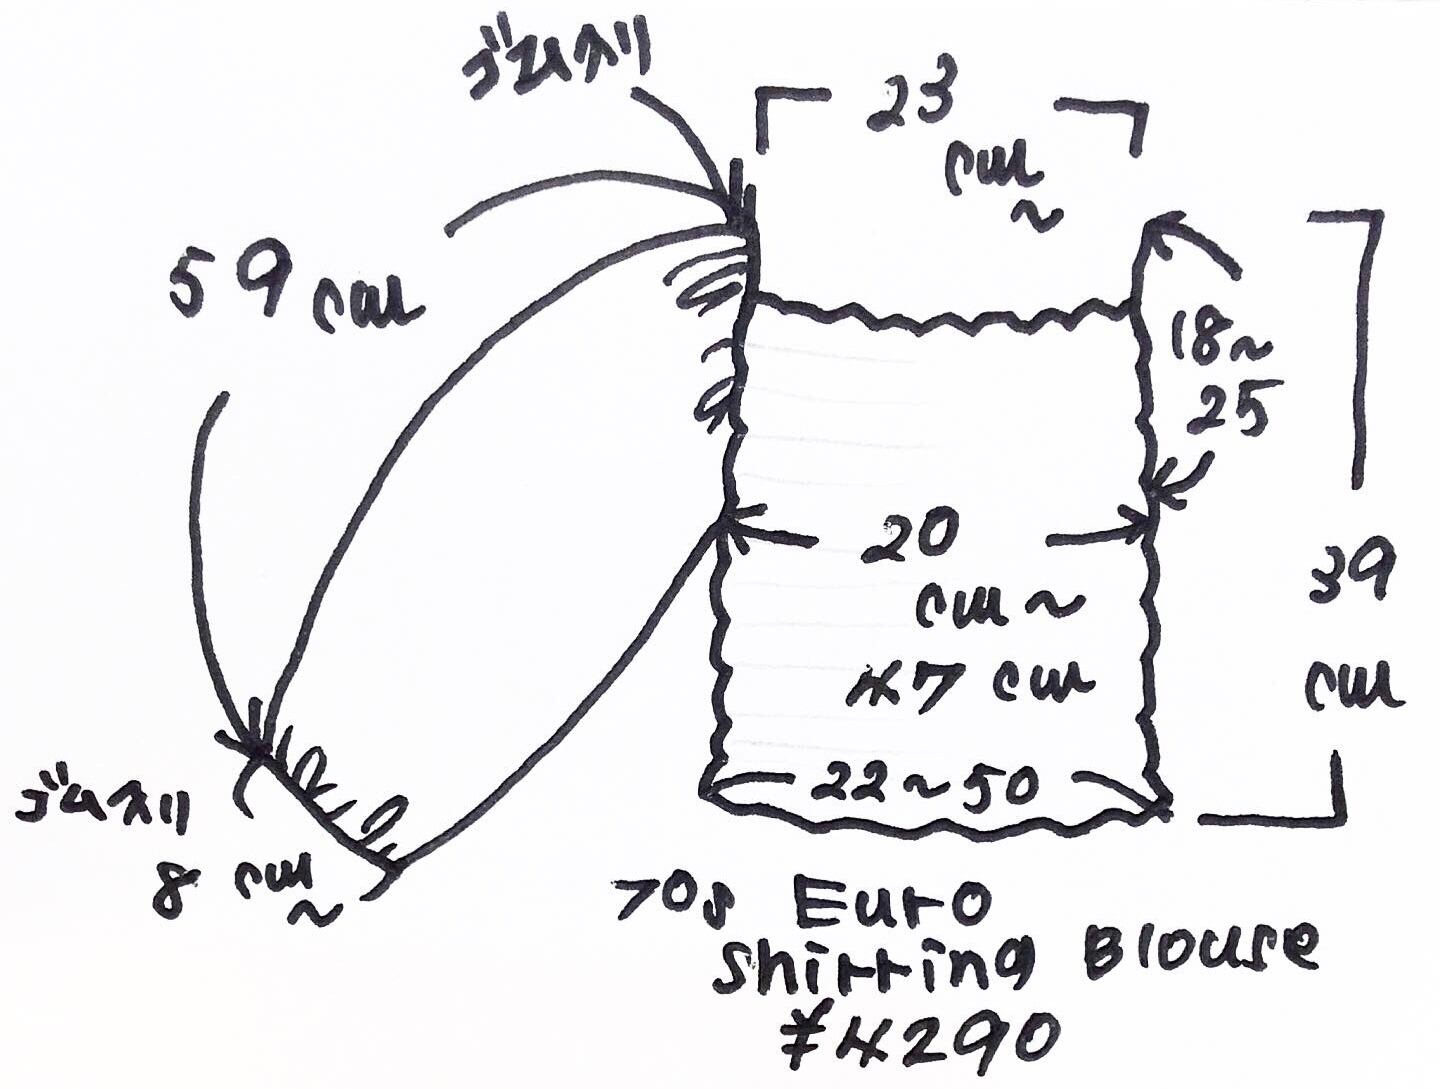 ゴム入り
23
cm
~
59 cm
18~
25
20
cm ~
47 cm
39
cm
22~50
ゴム入り
8 cm
~
70s Euro
Shirring Blouse
¥4290